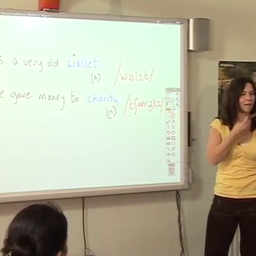 s a very old wallet /wɒlɪt/
(n)
e gave money to charity /tʃærɪti/
(n)